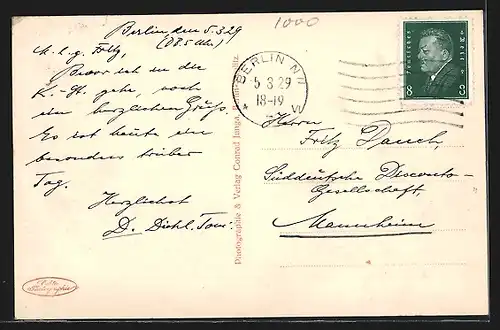 1000
Berlin, den 5.3.29
M. l. g. Fritz,
Bevor ich in die
K.-H. gehe, noch
ein herzlichen Gruß.
Es ist heute ein
besonders trüber
Tag.
Herzlichst
D. Dichl.
Photographie & Verlag Conrad Junga,
BERLIN N
5 3 29
18-19
Deutsches Reich
8 8
Herrn
Fritz Dauch,
Süddeutsche Disconto-
Gesellschaft,
Mannheim
Photographie